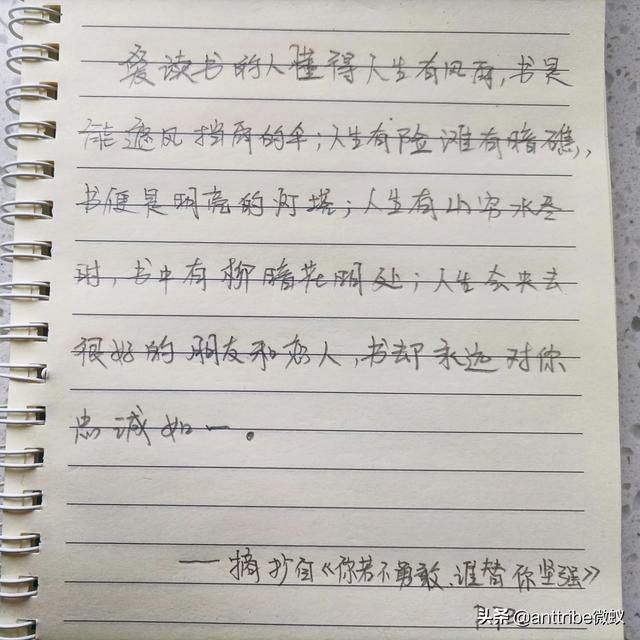 爱读书的人懂得人生有风雨,书是
能遮风挡雨的伞;人生有险滩有暗礁,
书便是明亮的灯塔;人生有山穷水尽
时,书中有柳暗花明处;人生会失去
很好的朋友和恋人,书却永远对你
忠诚如一。
——摘抄自《你若不勇敢,谁替你坚强》
头条@anttribe微蚁